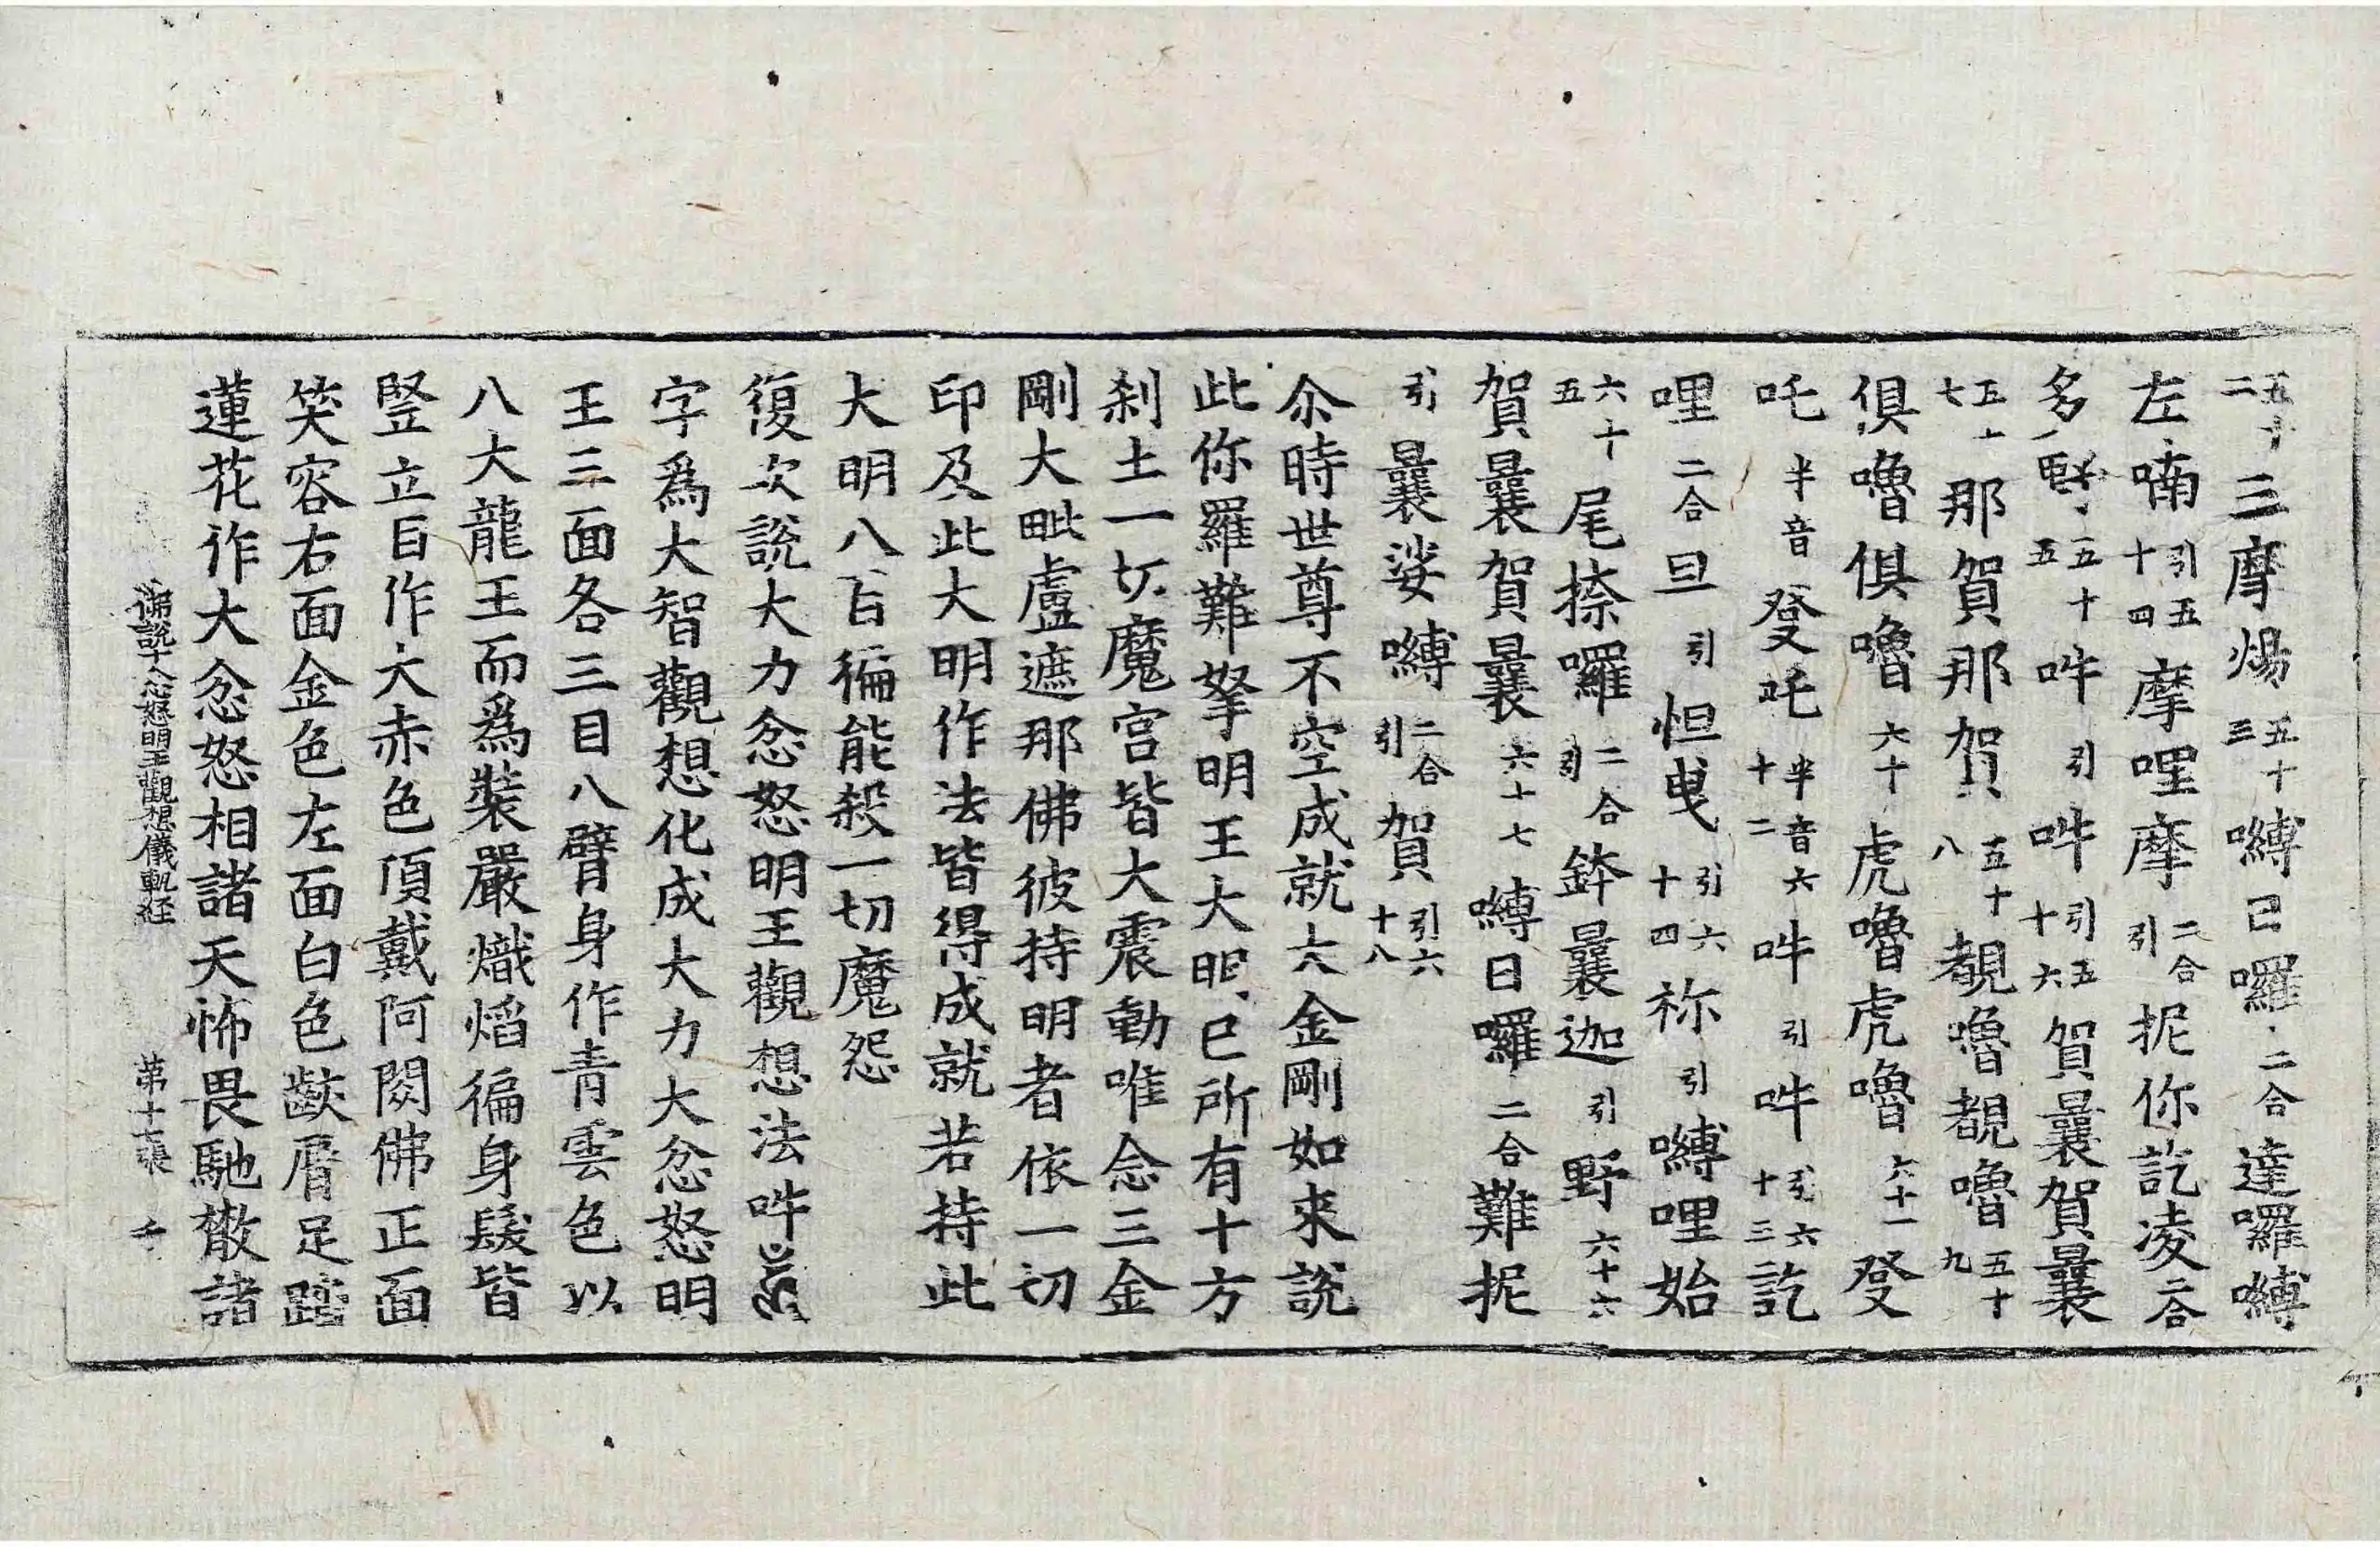 五十二三摩煬五十三嚩日囉二合達囉嚩
左喃引五十四摩哩摩二合引抳你訖凌二合
多五十五吽引吽引五十六賀曩賀曩
五十七那賀那賀五十八覩嚕覩嚕五十九
俱嚕俱嚕六十虎嚕虎嚕六十一發
吒半音發吒半音六十二吽引吽引六十三訖
哩二合旦引怛曳引六十四祢引嚩哩始
六十五尾捺囉二合引鉢曩迦引野六十六
賀曩賀曩六十七嚩日囉二合難抳
引曩娑嚩二合引賀引六十八
尒時世尊不空成就大金剛如來說
此你羅難拏明王大明已所有十方
刹土一切魔宮皆大震動唯念三金
剛大毗盧遮那佛彼持明者依一切
印及此大明作法皆得成就若持此
大明八百徧能殺一切魔怨
復次說大力忿怒明王觀想法吽
字爲大智觀想化成大力大忿怒明
王三面各三目八臂身作青雲色以
八大龍王而爲裝嚴熾焰徧身髮皆
豎立目作大赤色頂戴阿閦佛正面
笑容右面金色左面白色齩脣足踏
蓮花作大忿怒相諸天怖畏馳散諸
佛說大忿怒明王觀想儀軌經 第十張